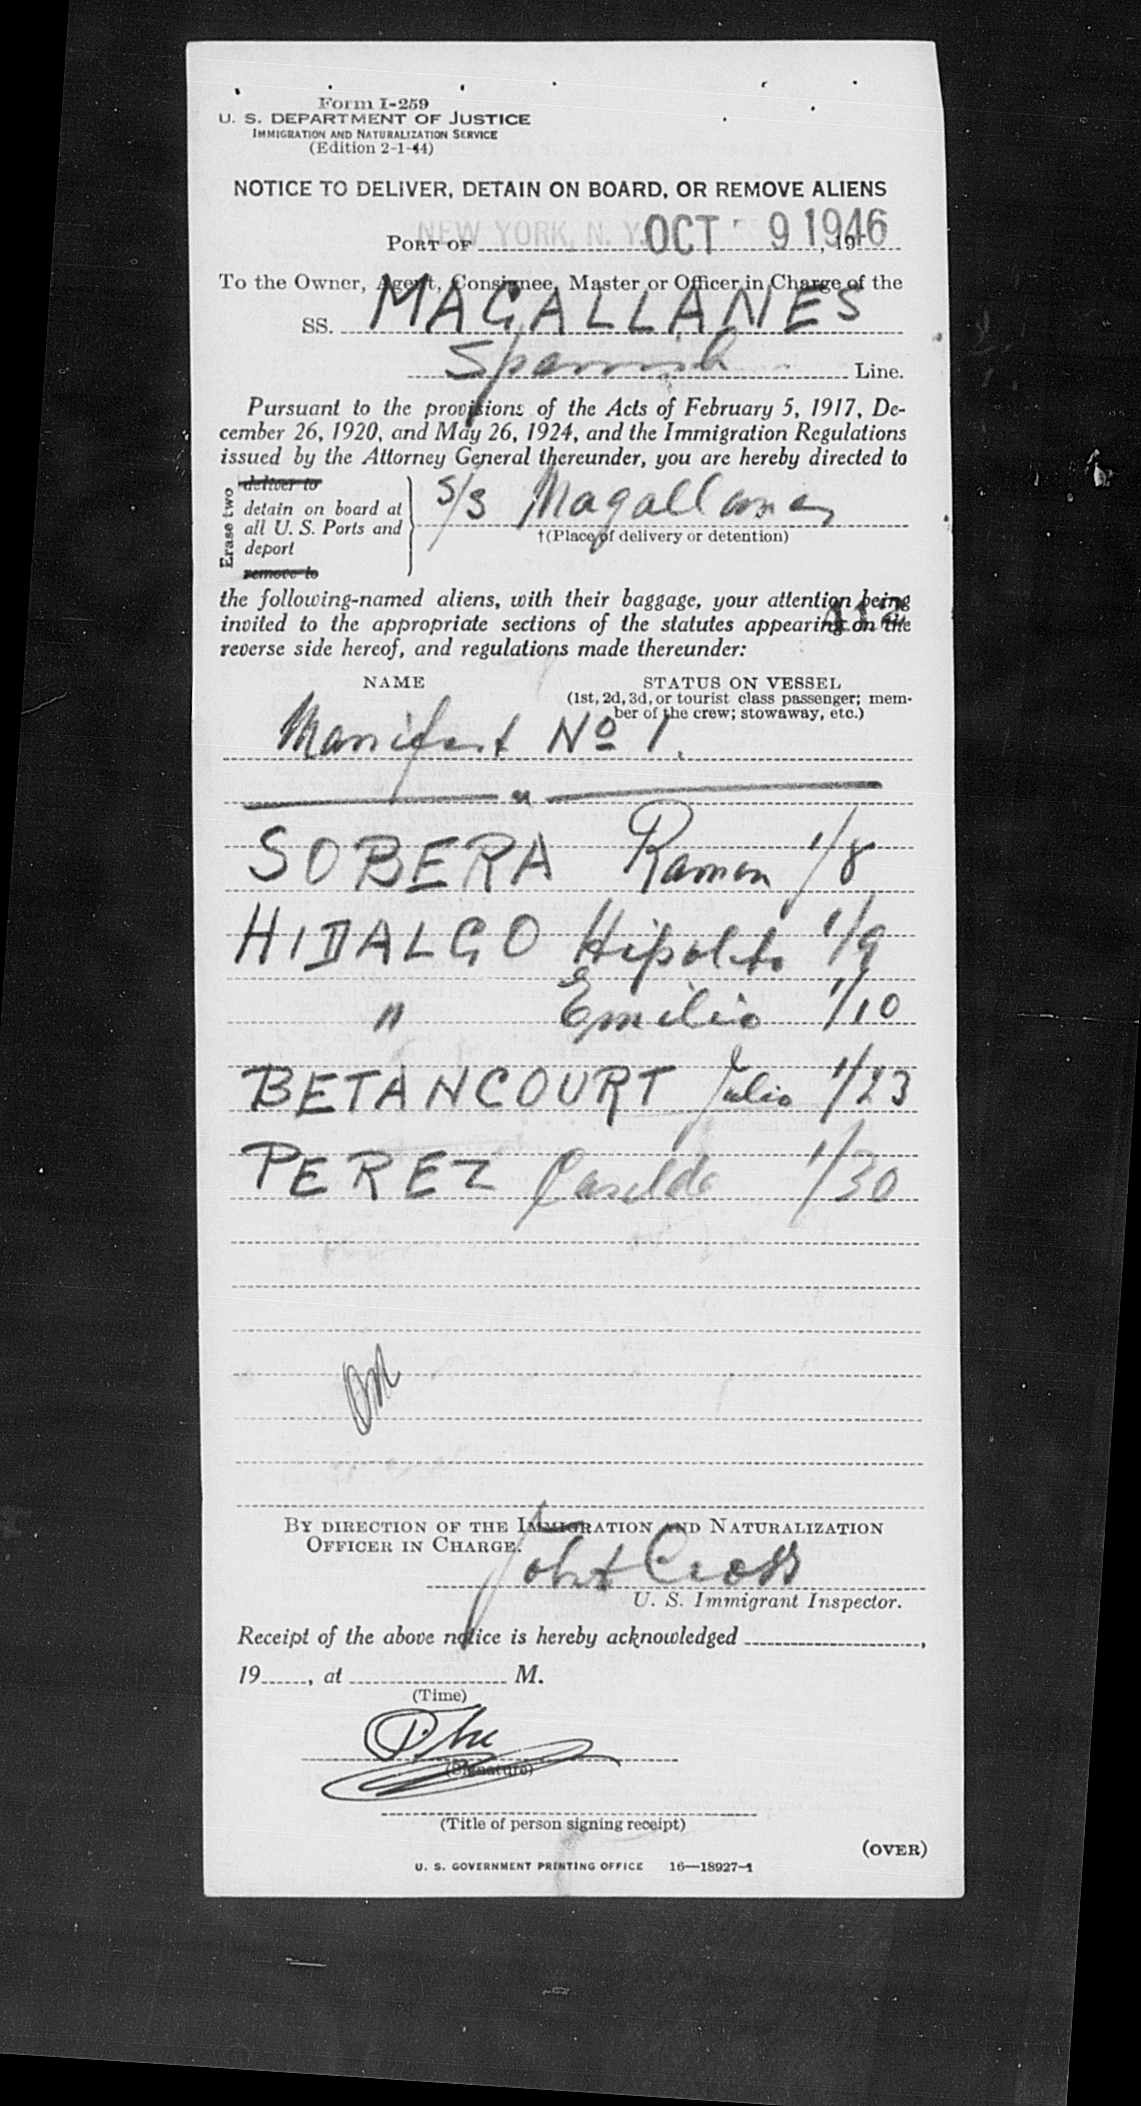 Form I-259
U. S. DEPARTMENT OF JUSTICE
IMMIGRATION AND NATURALIZATION SERVICE
(Edition 2-1-44)
NOTICE TO DELIVER, DETAIN ON BOARD, OR REMOVE ALIENS
PORT OF NEW YORK, N. Y. OCT 9 1946, 19
To the Owner, Agent, Consignee, Master or Officer in Charge of the
SS. MAGALLANES
Spanish Line.
Pursuant to the provisions of the Acts of February 5, 1917, De-
cember 26, 1920, and May 26, 1924, and the Immigration Regulations
issued by the Attorney General thereunder, you are hereby directed to
Erase two
deliver to
detain on board at
all U. S. Ports and
deport
remove to
S/S Magallanes
†(Place of delivery or detention)
the following-named aliens, with their baggage, your attention being
invited to the appropriate sections of the statutes appearing on the
reverse side hereof, and regulations made thereunder:
NAME STATUS ON VESSEL
(1st, 2d, 3d, or tourist class passenger; mem-
ber of the crew; stowaway, etc.)
Manifest No 1.
SOBERA Ramon 1/8
HIDALGO Hipolito 1/9
" Emilio 1/10
BETANCOURT Julio 1/23
PEREZ 1/30
BY DIRECTION OF THE IMMIGRATION AND NATURALIZATION
OFFICER IN CHARGE.
Cross
U. S. Immigrant Inspector.
Receipt of the above notice is hereby acknowledged ,
19 , at M.
(Time)
(Signature)
(Title of person signing receipt)
(OVER)
U. S. GOVERNMENT PRINTING OFFICE 16—18927-1